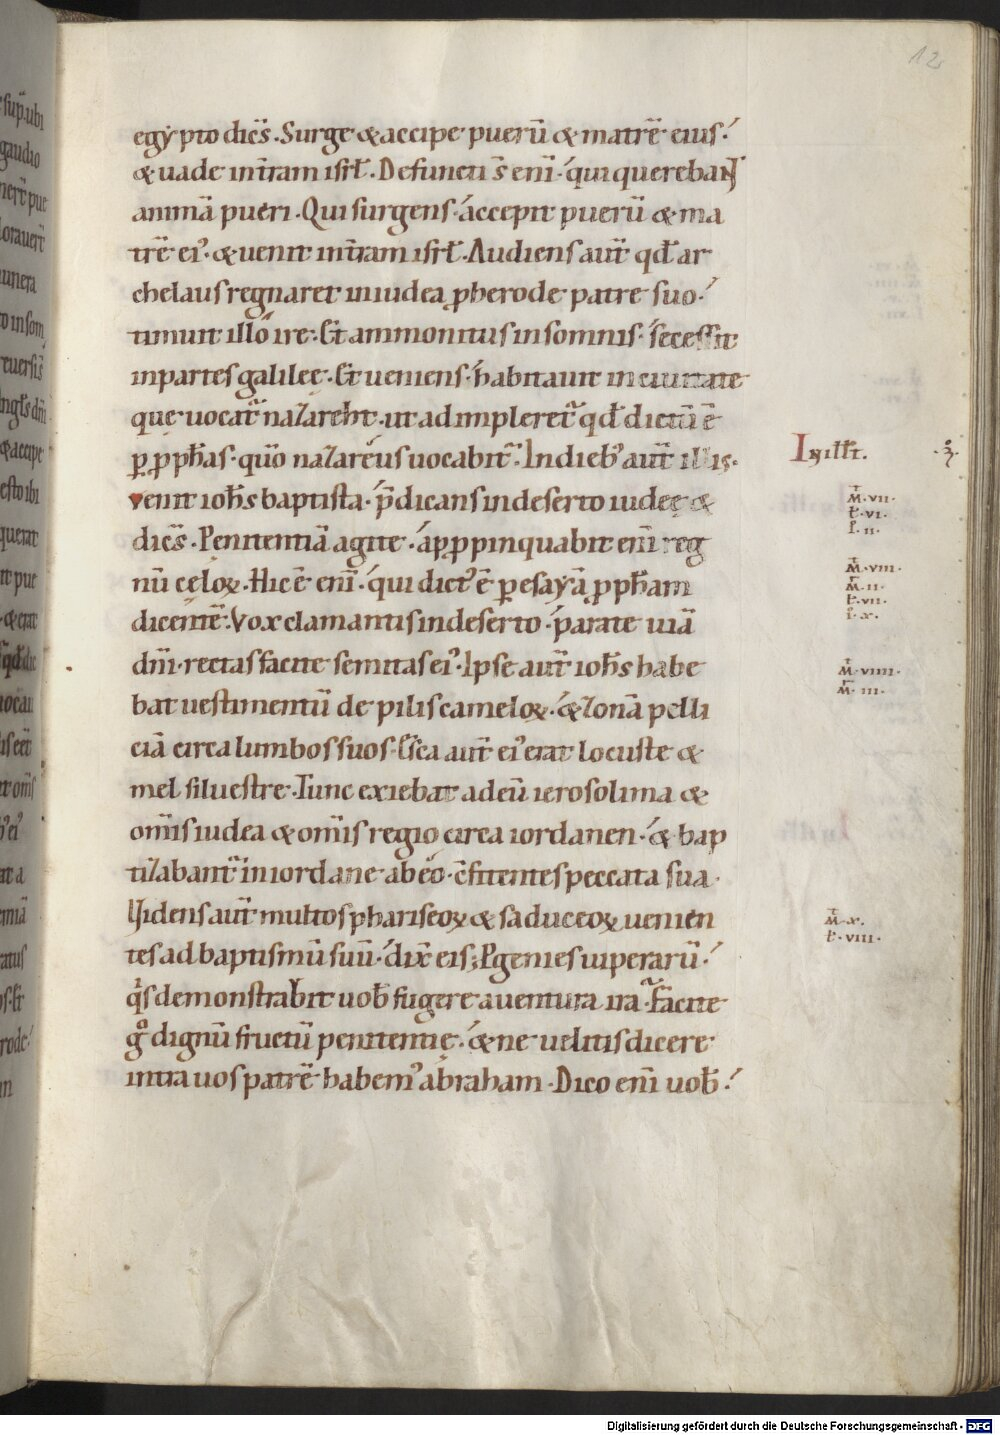 12
egypto dicẽs. Surge & accipe puerũ & matrẽ eius.
& uade in t̃ram isrł. Defuncti s̃ enĩ. qui querebant
animã pueri. Qui surgens. accepit puerũ & ma
trẽ ei'. & uenit in t̃ram isrł. Audiens aut̃ qđ ar
chelaus regnaret in iudea ꝓ herode patre suo.
timuit illo ire. Et ammonitus in somnis. secessit
in partes galileę. Et ueniens. habitauit in ciuitate
quę uocat̃ nazareht. ut adimpleret̃ qđ dictũ ẽ
ꝑ ꝓph̃as. qũo nazareus uocabit̃. In dieb' aut̃ illis.
venit ioh̃s baptista. p̃dicans in deserto iudeę &
dicẽs. Penitentiã agite. apꝓpinquabit enĩ reg
nũ cęloꝝ. Hic ẽ enĩ. qui dict' ẽ ꝑ esayã ꝓph̃am
dicentẽ. Vox clamantis in deserto. parate uiã
dñi. rectas facite semitas ei'. Ipse aut̃ ioh̃s habe
bat uestimentũ de pilis cameloꝝ. & zonã pelli
ciã circa lumbos suos. Esca aut̃ ei' erat locuste &
mel siluestre. Tunc exiebat ad eũ ierosolima &
om̃is iudea & om̃is regio circa iordanen. & bap
tizabant̃ in iordane ab eo. c̃fitentes peccata sua.
Uidens aut̃ multos phariseoꝝ & saduceoꝝ uenien
tes ad baptismũ suũ. dix̃ eis; Pgenies uiperarũ.
q̓s demonstrabit uob̃ fugere a uentura ira. Facite
g̊ dignũ fructũ penitentię. & ne uelitis dicere
intra uos patrẽ habem' abraham. Dico enĩ uob̃.
In illt̃. .3.
M. VII.
L. VI.
I. II.
M. VIII.
M. II.
L. VII.
I. X.
M. VIIII.
M. III.
M. X.
L. VIII.
Digitalisierung gefördert durch die Deutsche Forschungsgemeinschaft - DFG